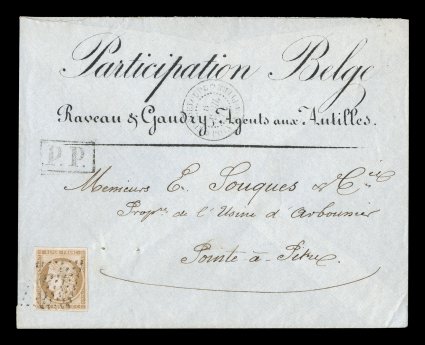 Participation Belge
Raveau & Gaudry, Agents aux Antilles.
P.P.
Messieurs E. Souques & Cie
Propres de l'Usine d'Arboussier
Pointe-à-Pitre